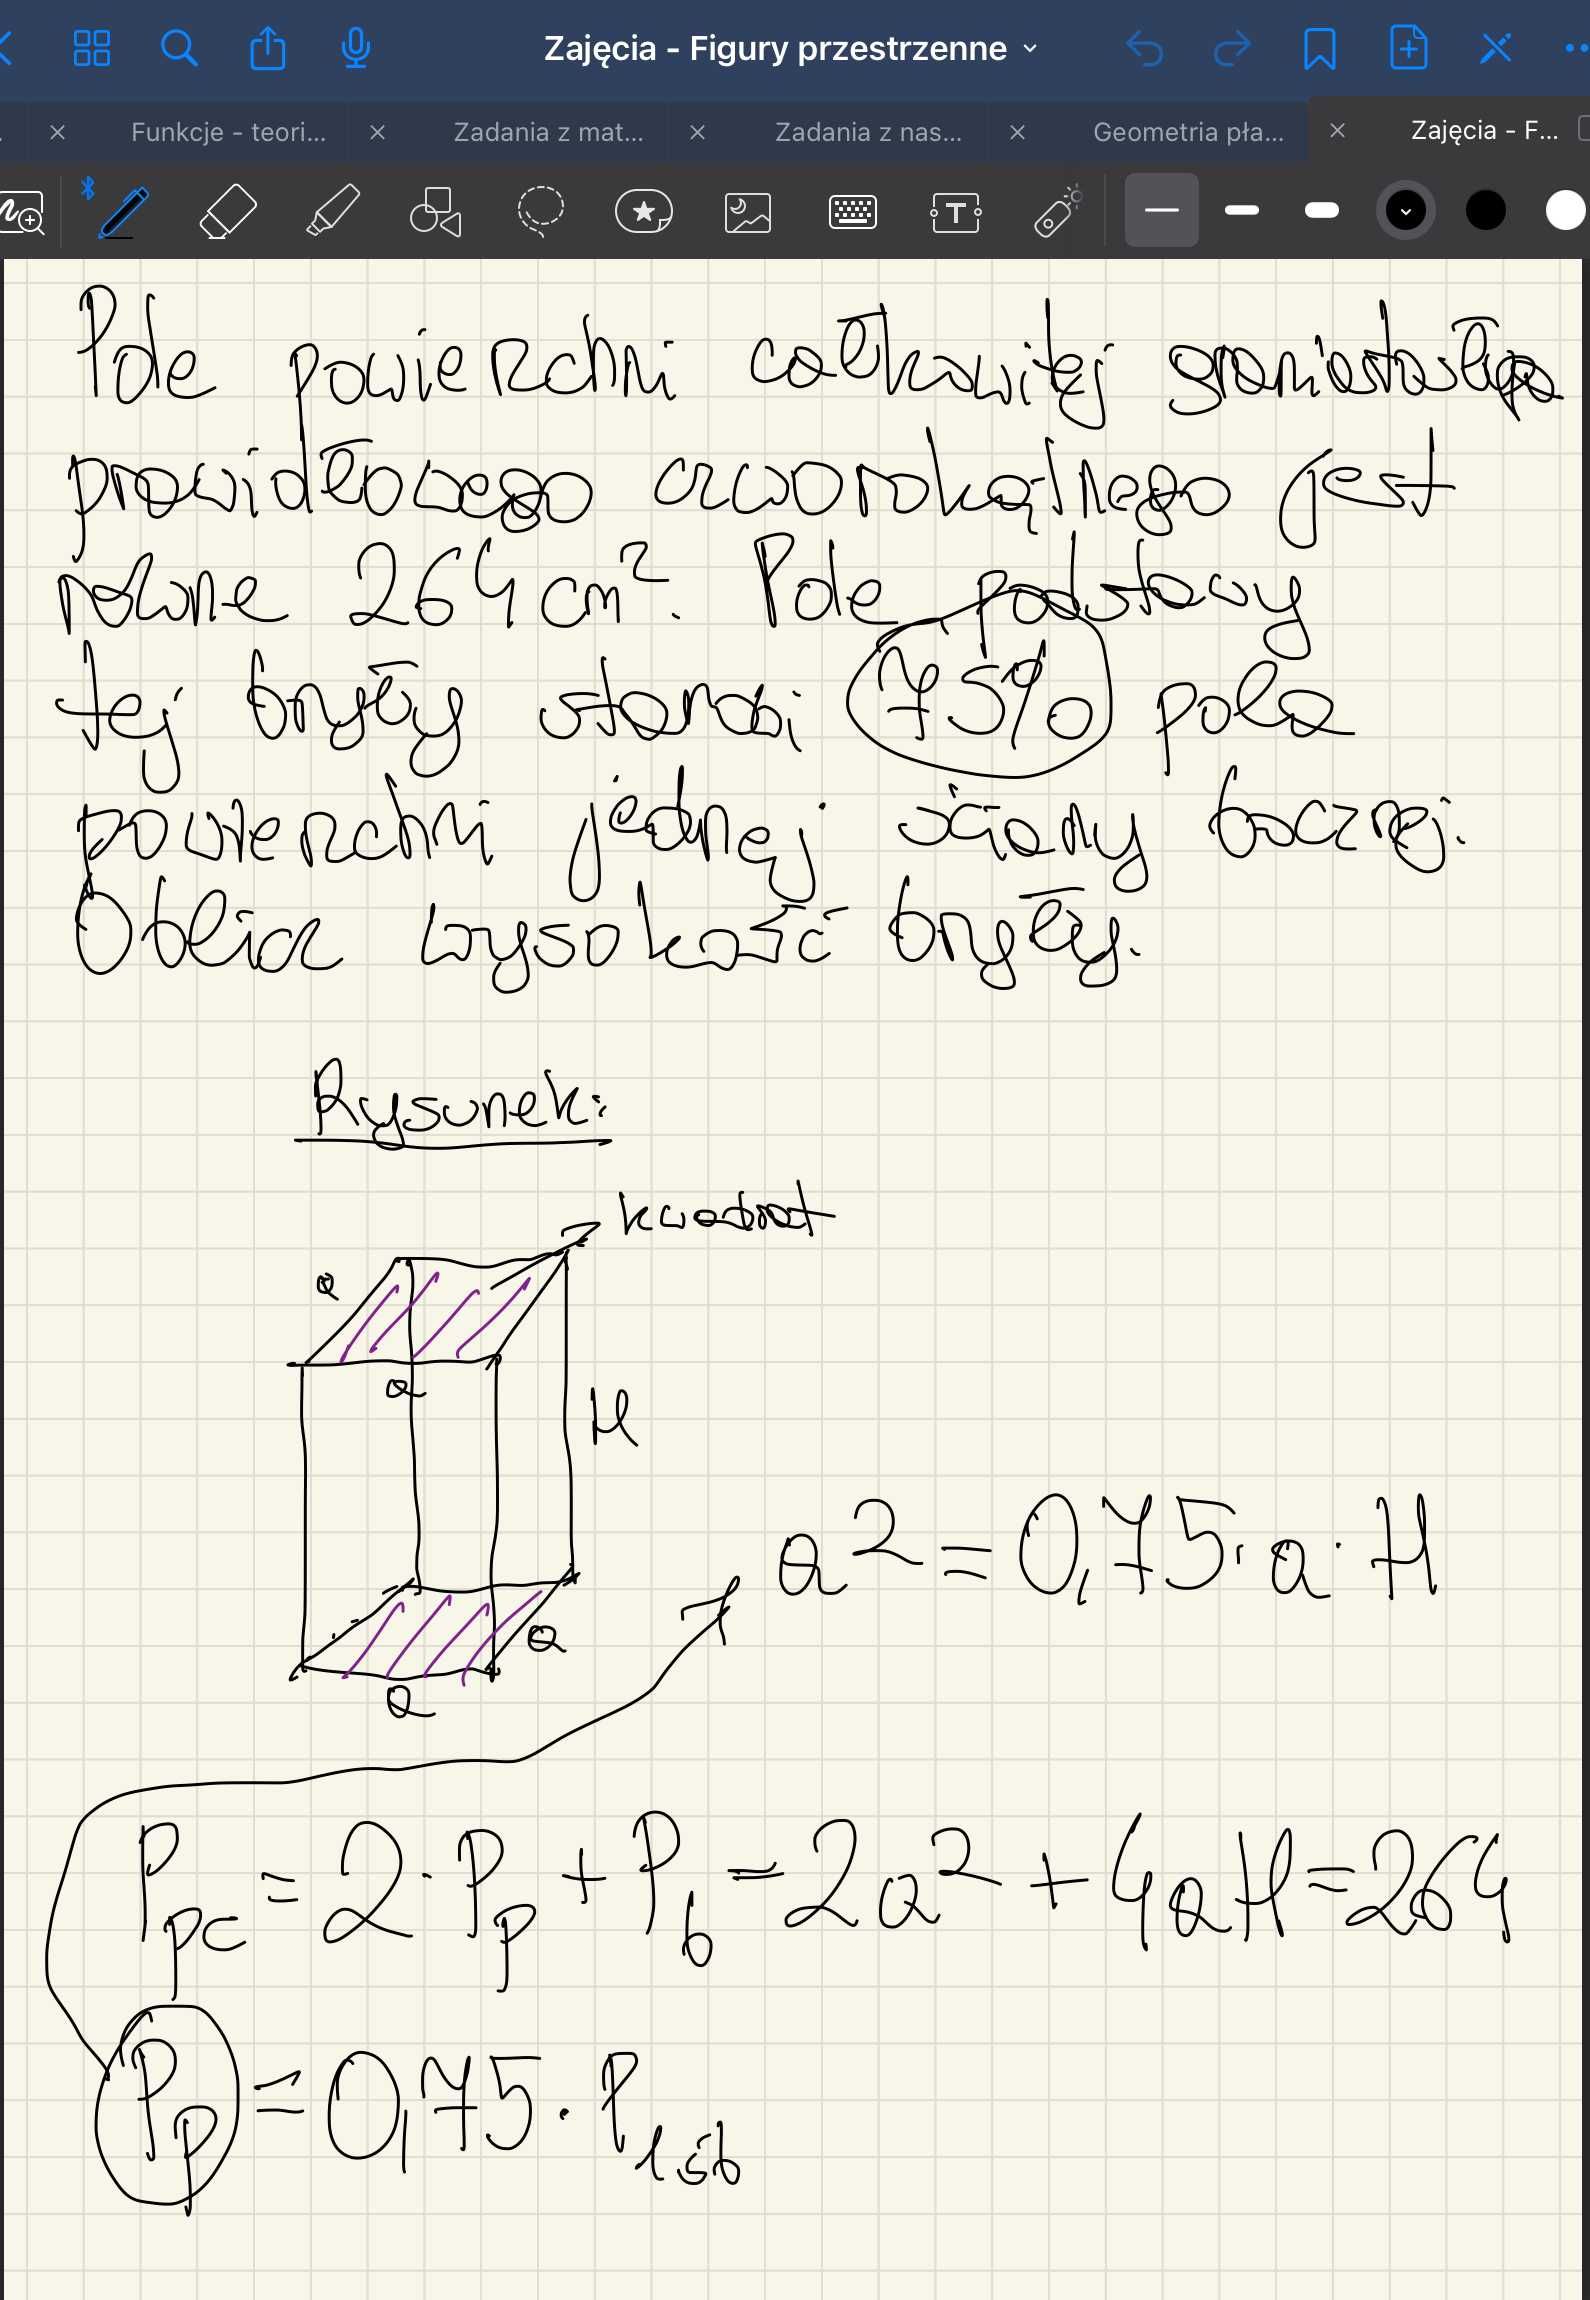 Zajęcia - Figury przestrzenne
Funkcje - teori...
Zadania z mat...
Zadania z nas...
Geometria pła...
Zajęcia - F...
Pole powierzchni całkowitej graniastosłupa
prawidłowego czworokątnego jest
równe 264 cm². Pole podstawy
tej bryły stanowi 75% pola
powierzchni jednej ściany bocznej.
Oblicz wysokość bryły.
Rysunek:
kwadrat
a
a
H
a² = 0,75 · a · H
a
a
P_pc = 2 · P_p + P_b = 2a² + 4aH = 264
P_p = 0,75 · P_1śb